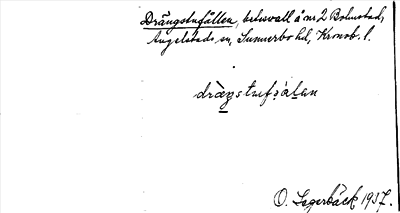 Drängstufällan, betesvall å nr 2 Bolmstad,
Angelstads sn, Sunnerbo hd, Kronob. l.
drängstufälan
O. Lagerbäck 1937.